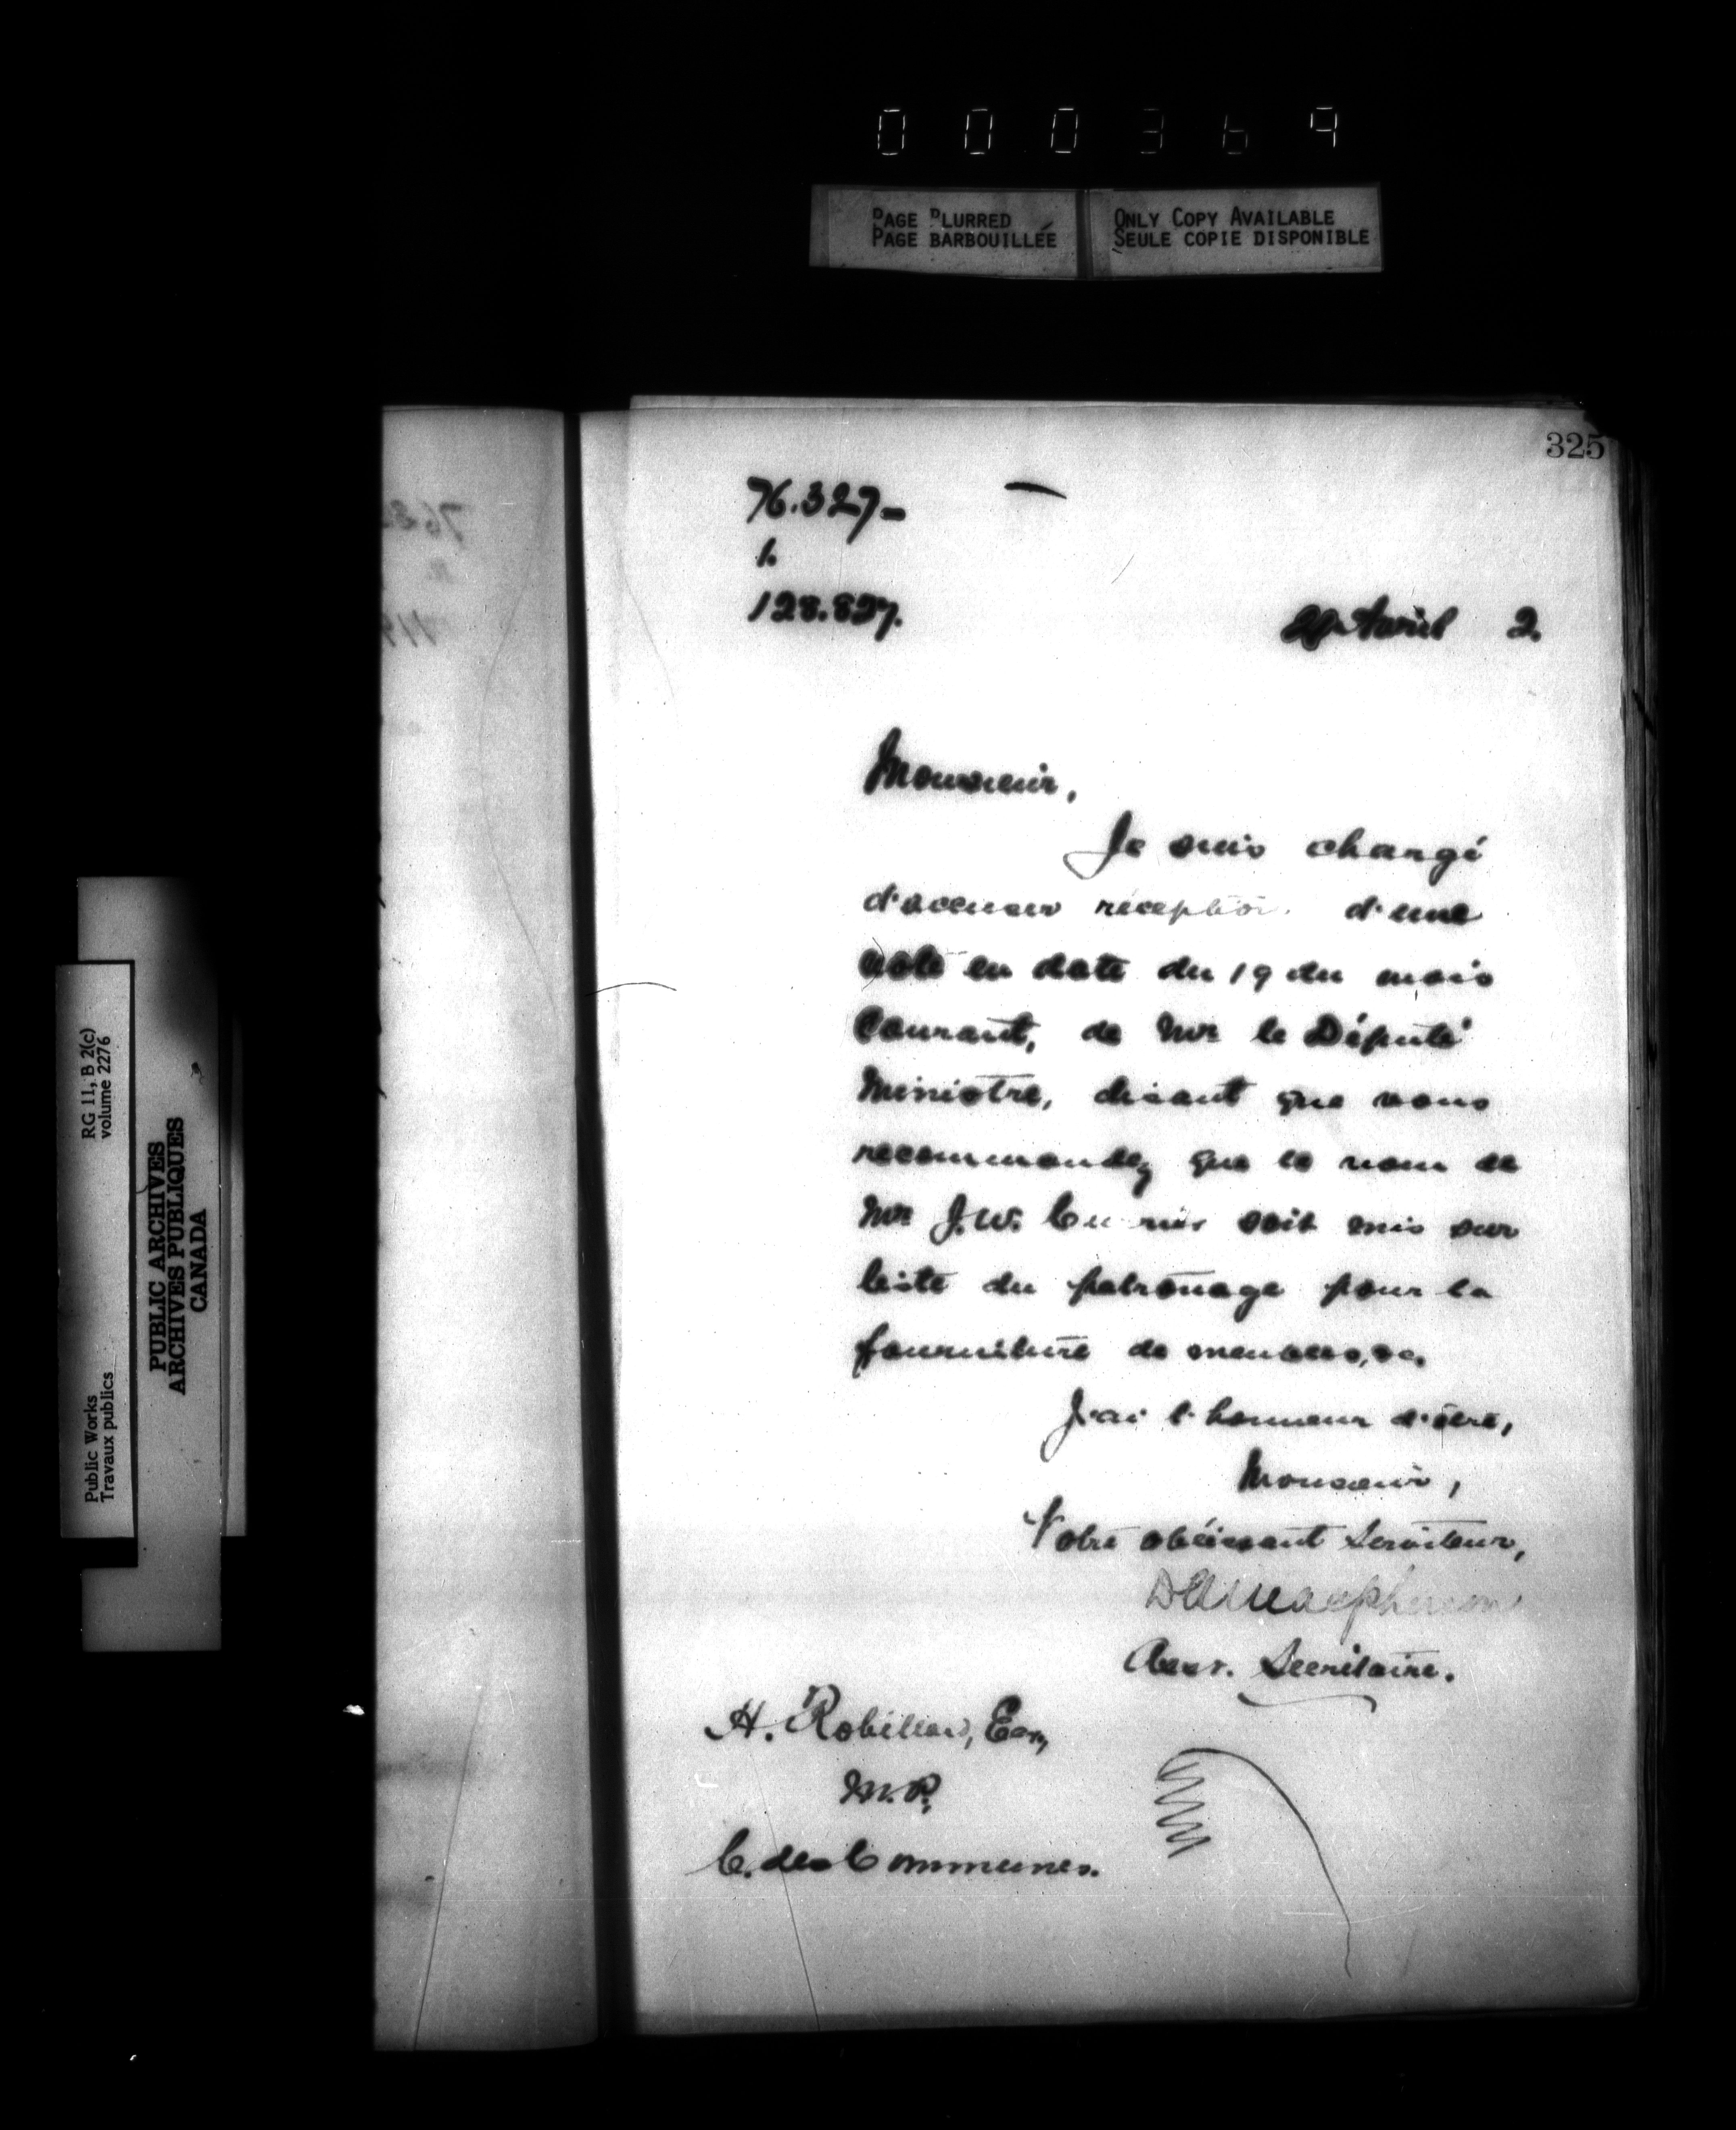 000369
PAGE BLURRED
PAGE BARBOUILLÉE
ONLY COPY AVAILABLE
SEULE COPIE DISPONIBLE
325
76.327-
1.
128.827.
Avril 2.
Monsieur,
Je suis chargé
d'accuser réception d'une
note en date du 19 du mois
Courant, de Mr le Député
Ministre, disant que vous
recommandez que le nom de
Mr J.W. soit mis sur
liste du patronage pour la
fourniture de meubles, &c.
J'ai l'honneur d'être,
Monsieur,
Votre obéissant Serviteur,
DAMacpherson
Asst. Secrétaire.
H. Robillard, Esq,
M.P.,
C. des Communes.
Public Works
Travaux publics
RG 11, B 2(c)
volume 2276
PUBLIC ARCHIVES
ARCHIVES PUBLIQUES
CANADA